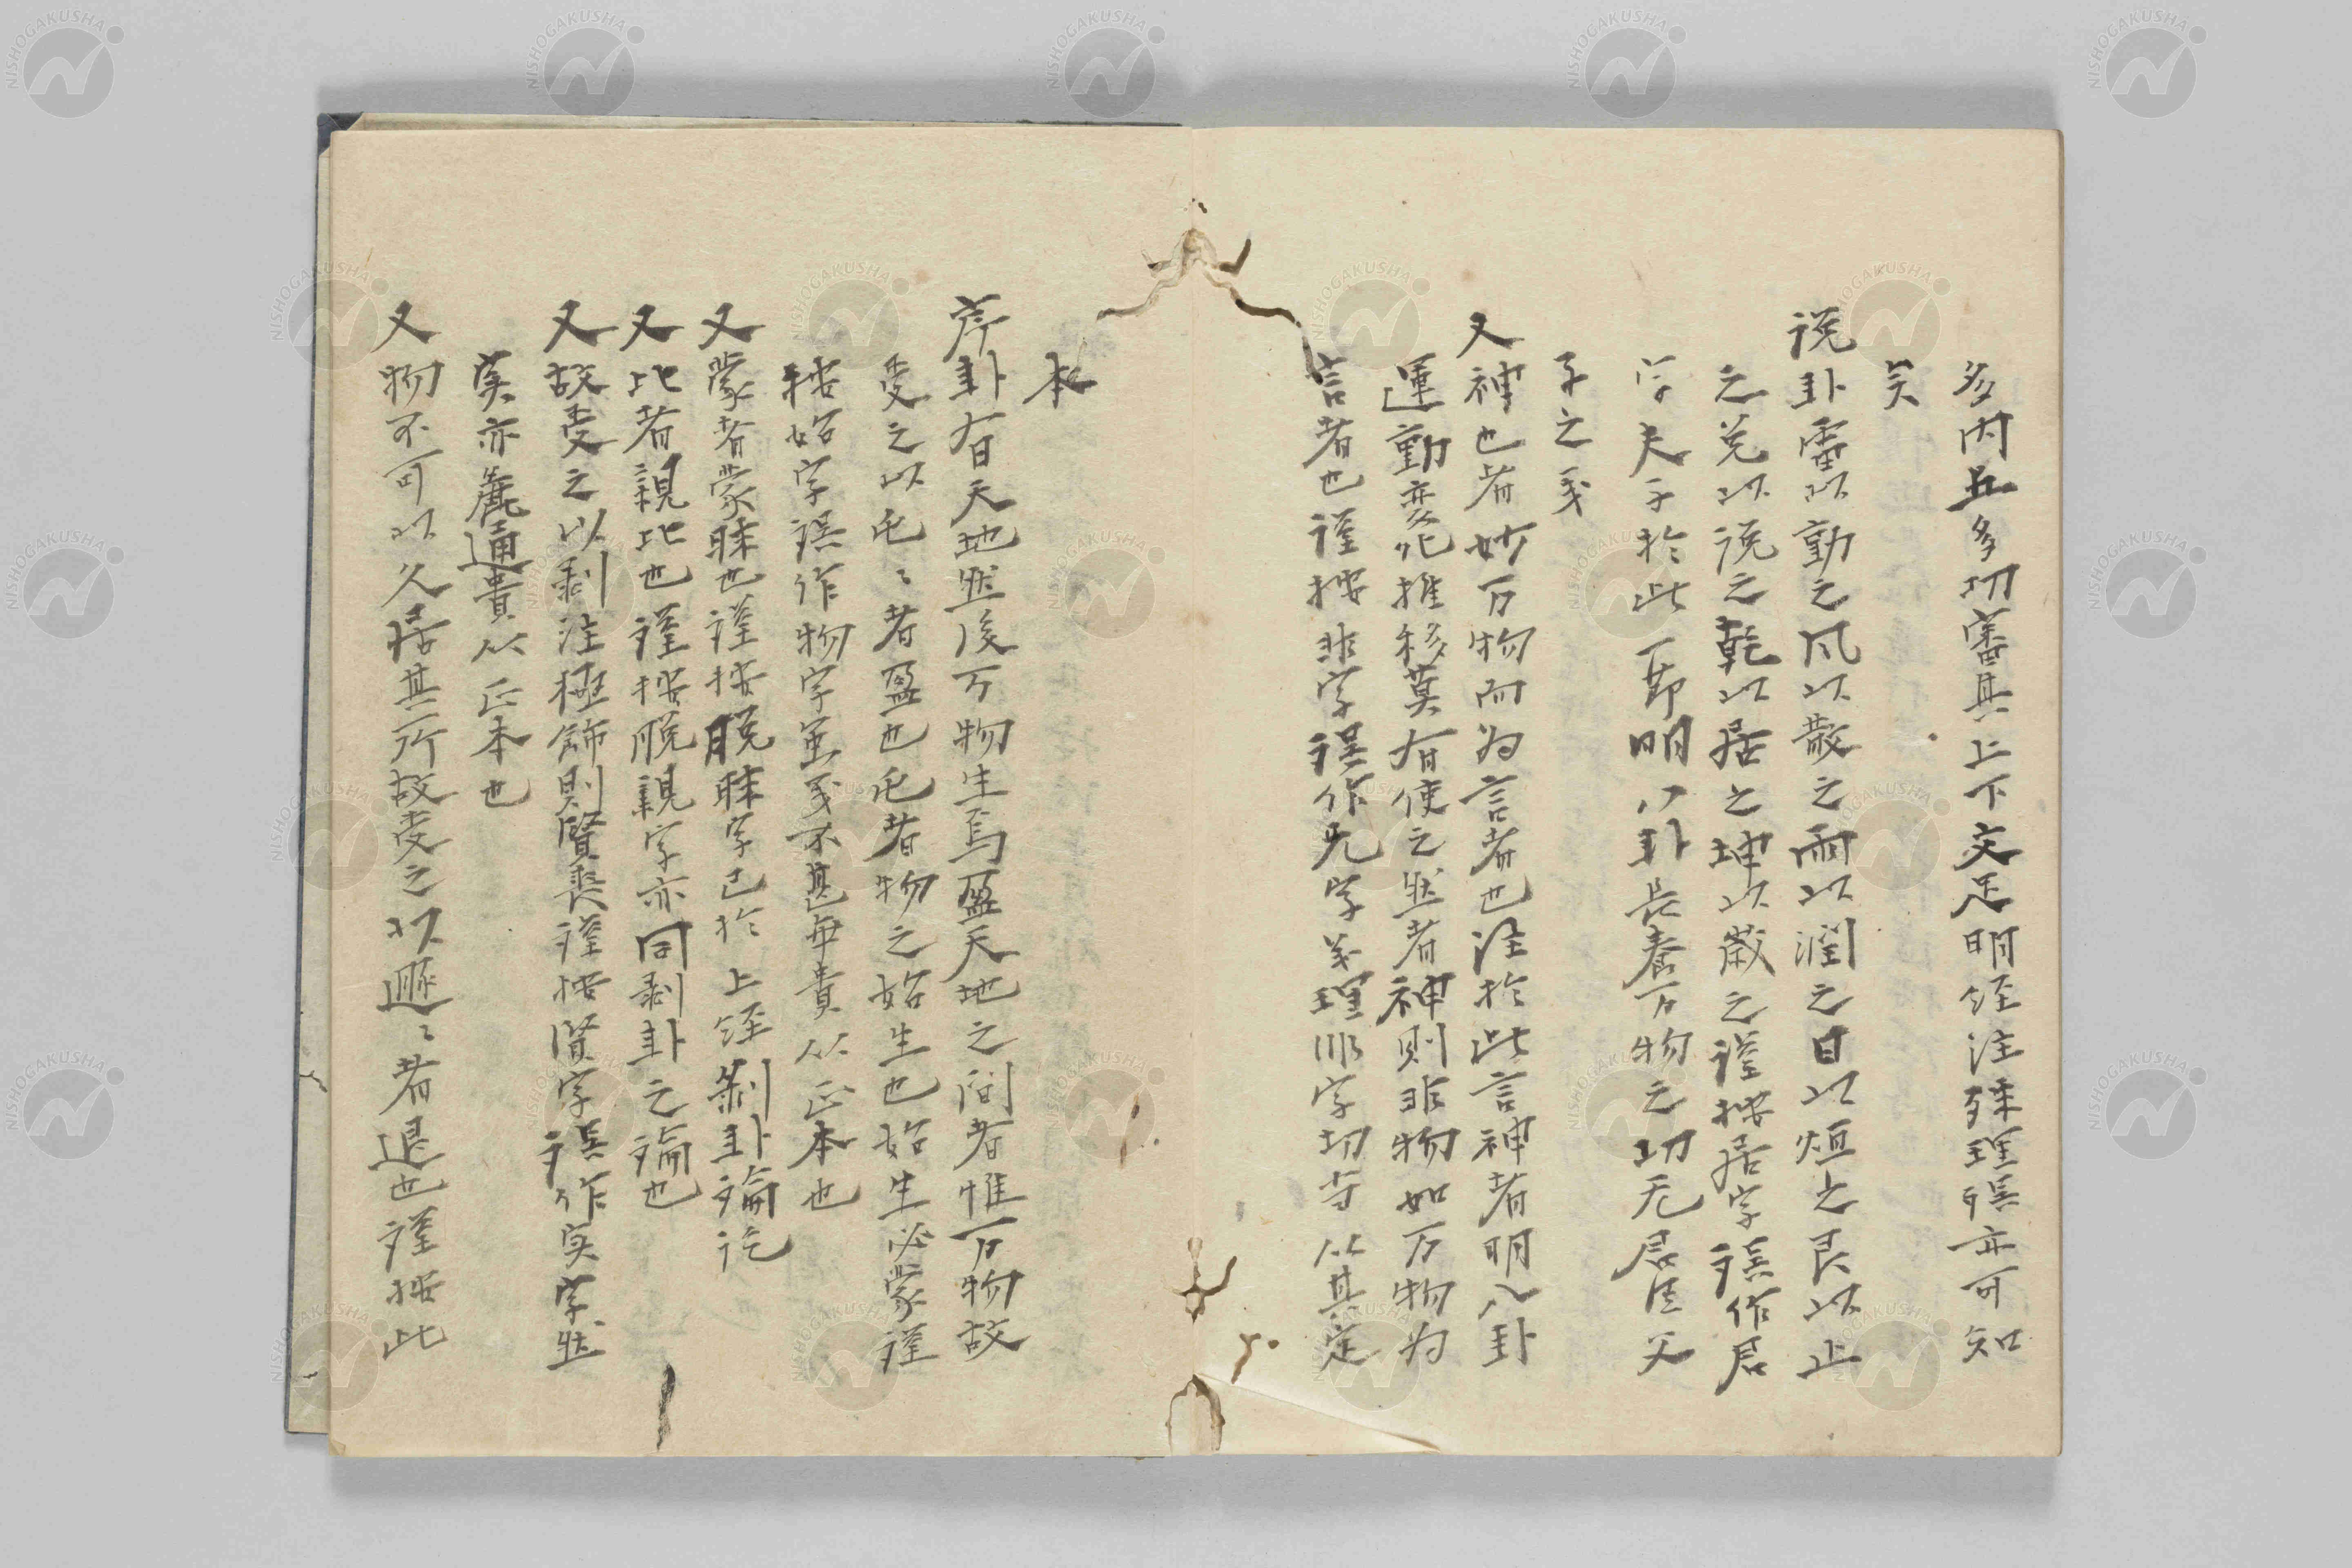 多內且多切審其上下文足明経注殊理誤亦可知
矣
説卦雷以動之風以散之雨以潤之日以烜之艮以止
之兌以説之乾以居之坤以蔵之謹按居字誤作君
字夫子於此一節明八卦長養万物之功无君臣父
子之義
又神也者妙万物而為言者也注於此言神者明八卦
運動変化推移莫有使之然者神則非物如万物為
言者也謹按非字誤作无字義理非字切寺从其定
本
序卦有天地然後万物生焉盈天地之間者惟万物故
受之以屯〻者盈也屯者物之始生也始生必蒙謹
按始字誤作物字虽義不甚毎貴从正本也
又蒙者蒙昧也謹按脱昧字已於上経剥卦論訖
又比者親比也謹按脱親字亦同剥卦之論也
又故受之以剥注極飾則賢喪謹按賢字誤作実字然
実亦麁通貴从正本也
又物不可以久居其所故受之以遯〻者退也謹按此
NISHOGAKUSHA